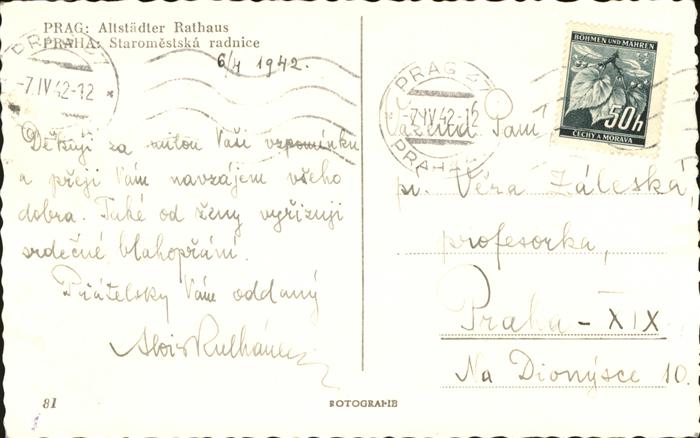 PRAG: Altstädter Rathaus
PRAHA: Staroměstská radnice
6/4 1942.
Děkuji za milou Vaši vzpomínku
a přeji Vám navzájem všeho
dobra. Také od ženy vyřizuji
srdečné blahopřání.
Přátelsky Vám oddaný
Alois
81
FOTOGRAFIE
PRAG 27
-7.IV.42-12
PRAHA
PRAG 27
-7.IV.42-12
PRAHA
BÖHMEN UND MÄHREN
50h
ČECHY A MORAVA
Vážená Paní
Věra Záleská,
profesorka,
Praha - XIX
Na Dionýsce 10.